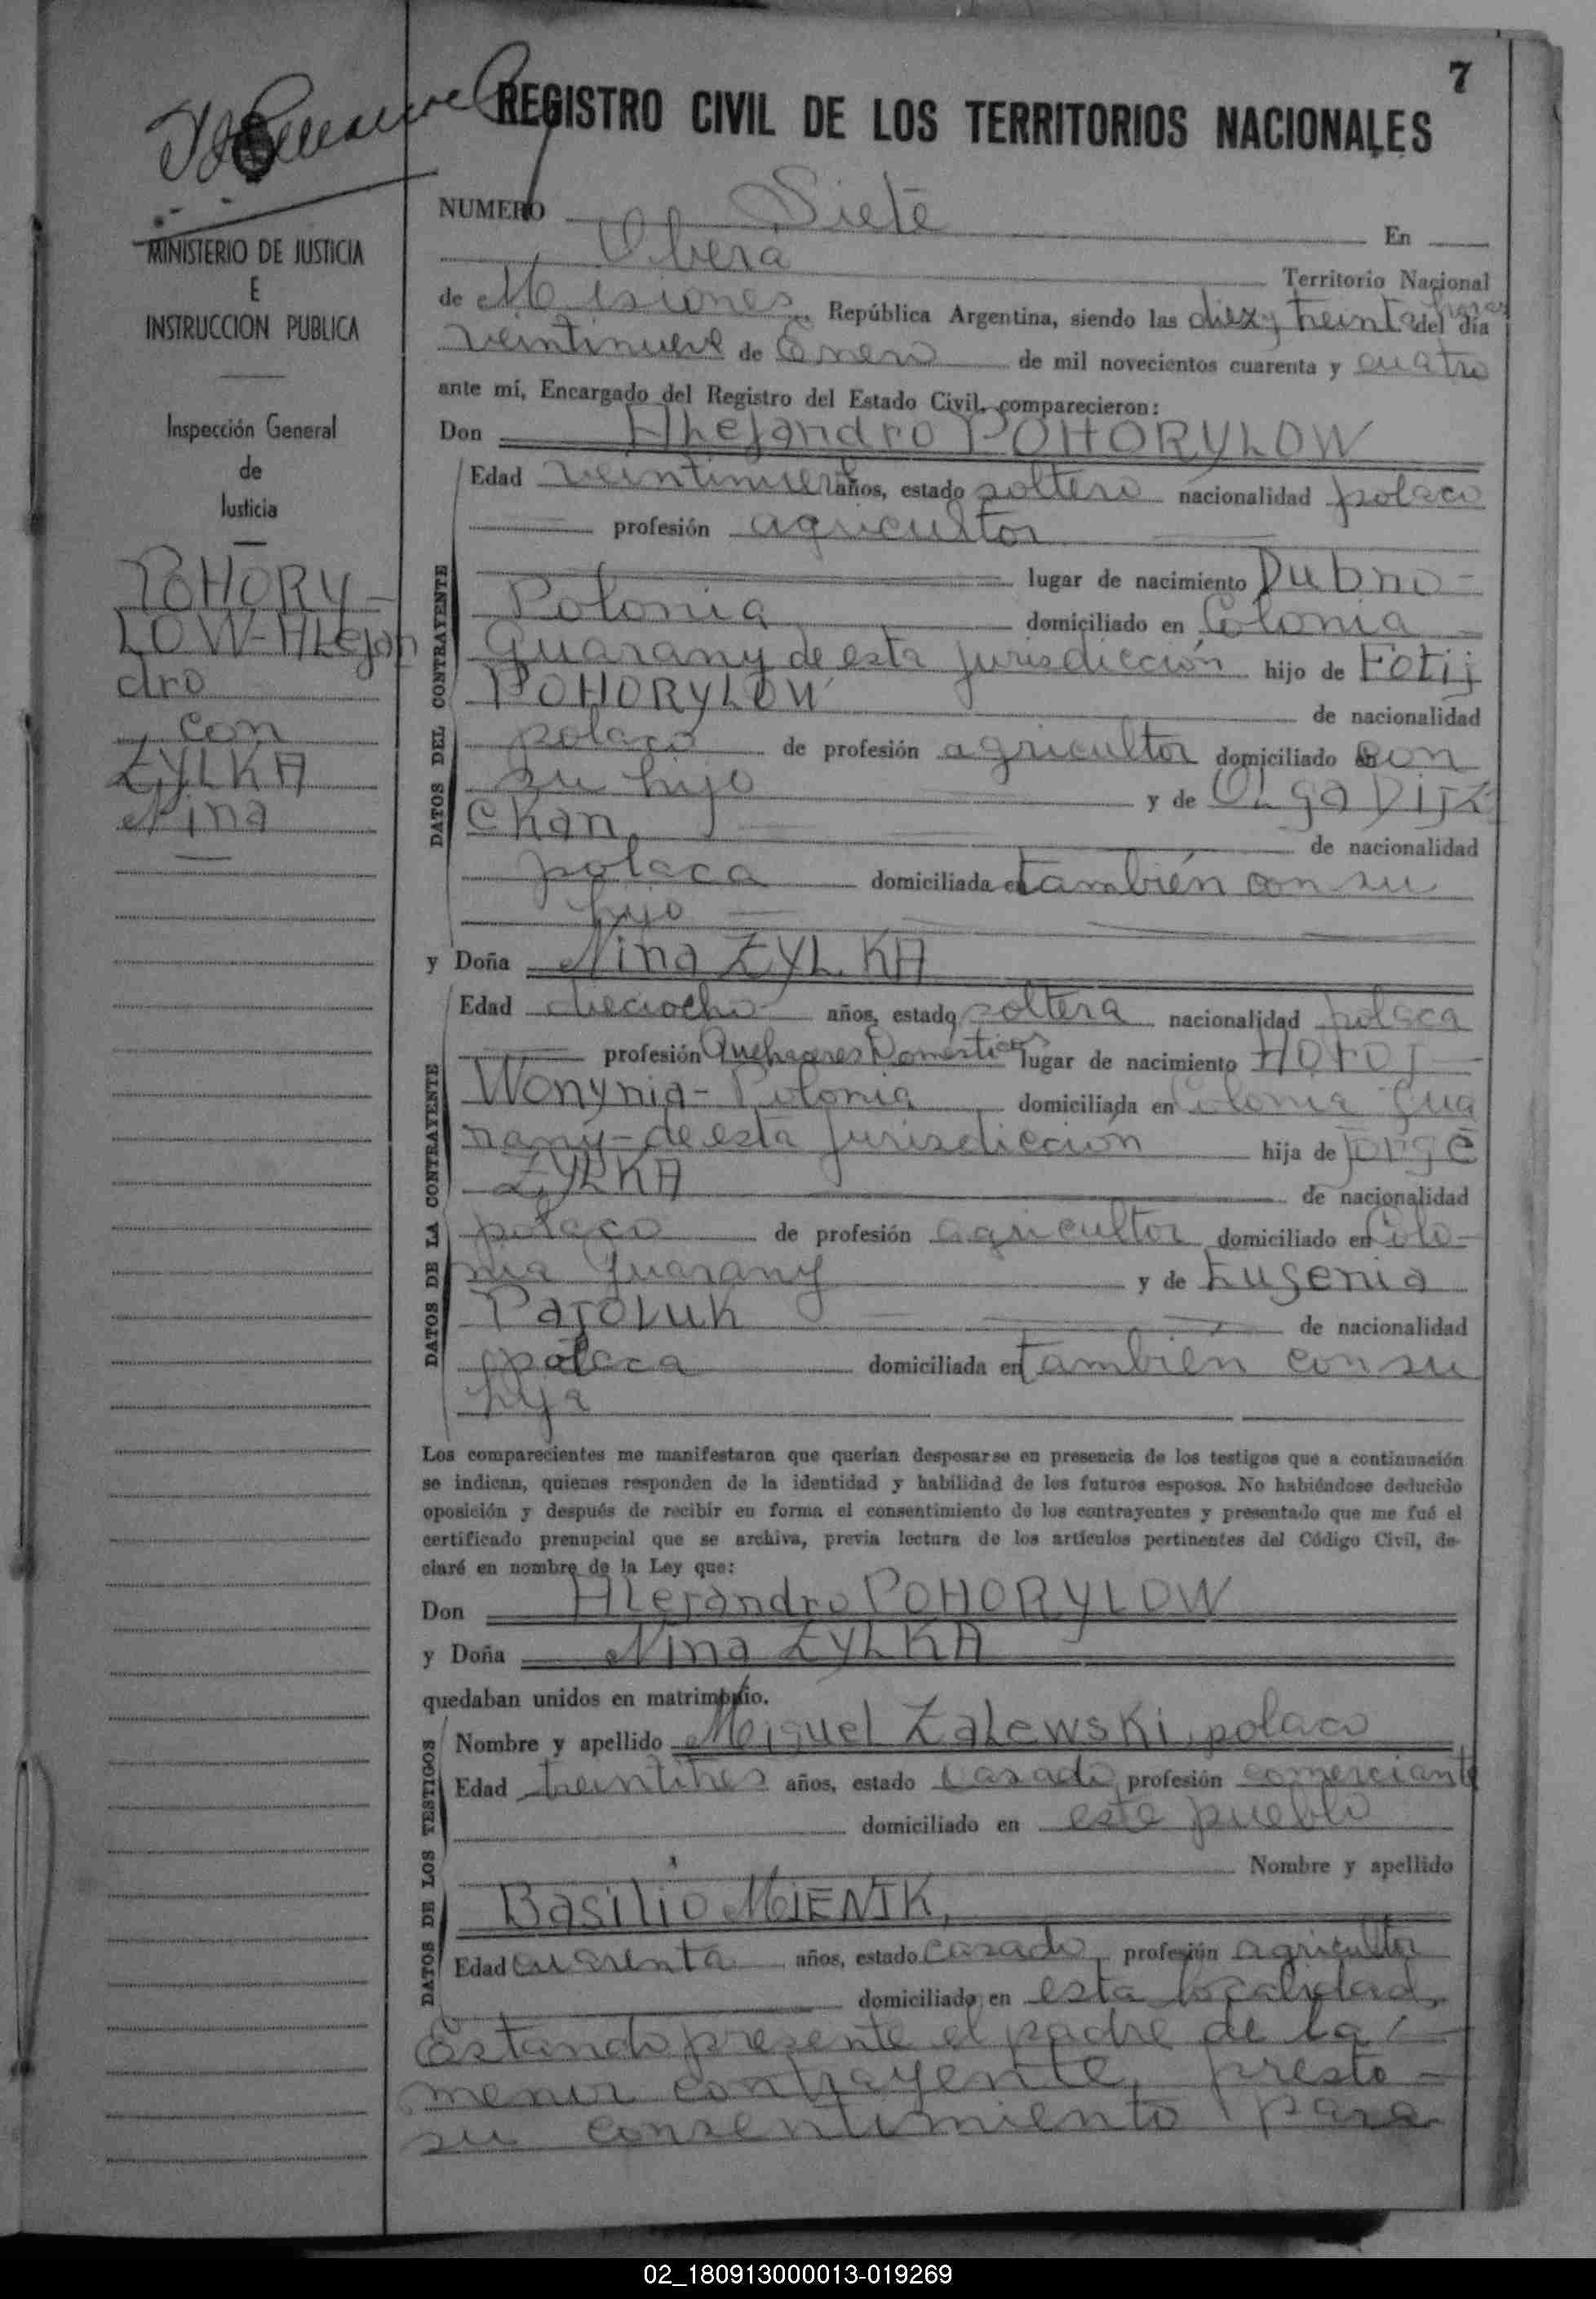 7
REGISTRO CIVIL DE LOS TERRITORIOS NACIONALES
MINISTERIO DE JUSTICIA
E
INSTRUCCION PUBLICA
Inspección General
de
Justicia
POHORY-
LOW-ALejan
dro
con
ZYLKA
Nina
NUMERO Siete En
Obera Territorio Nacional
de Misiones República Argentina, siendo las diez y treinta horas del día
veintinueve de Enero de mil novecientos cuarenta y cuatro
ante mí, Encargado del Registro del Estado Civil, comparecieron:
Don ALejandro POHORYLOW
DATOS DEL CONTRAYENTE
Edad veintinueve años, estado soltero nacionalidad polaco
profesión agricultor
lugar de nacimiento Dubno-
Polonia domiciliado en Colonia
Guarany de esta jurisdicción hijo de Fotij
POHORYLOW de nacionalidad
polaco de profesión agricultor domiciliado con
su hijo y de OLga
chan de nacionalidad
polaca domiciliada en también con su
hijo
y Doña Nina ZYLKA
DATOS DE LA CONTRAYENTE
Edad dieciocho años, estado soltera nacionalidad polaca
profesión Quehaceres Domésticos lugar de nacimiento
Wonynia-Polonia domiciliada en Colonia Gua
rany-de esta jurisdiccion hija de Jorge
ZYLKA de nacionalidad
polaco de profesión agricultor domiciliado en Colo-
nia Guarany y de Eugenia
de nacionalidad
polaca domiciliada en tambien con su
hija
Los comparecientes me manifestaron que querían desposarse en presencia de los testigos que a continuación
se indican, quienes responden de la identidad y habilidad de los futuros esposos. No habiéndose deducido
oposición y después de recibir en forma el consentimiento de los contrayentes y presentado que me fué el
certificado prenupcial que se archiva, previa lectura de los artículos pertinentes del Código Civil, de-
claré en nombre de la Ley que:
Don ALejandro POHORYLOW
y Doña Nina ZYLKA
quedaban unidos en matrimonio.
DATOS DE LOS TESTIGOS
Nombre y apellido Miguel ZaLewski, polaco
Edad treintitres años, estado casado profesión comerciante
domiciliado en este pueblo
Nombre y apellido
Basilio
Edad cuarenta años, estado casado profesión agricultor
domiciliado en esta localidad,
Estando presente el padre de la
menor contrayente, presto-
su consentimiento para
02_180913000013-019269